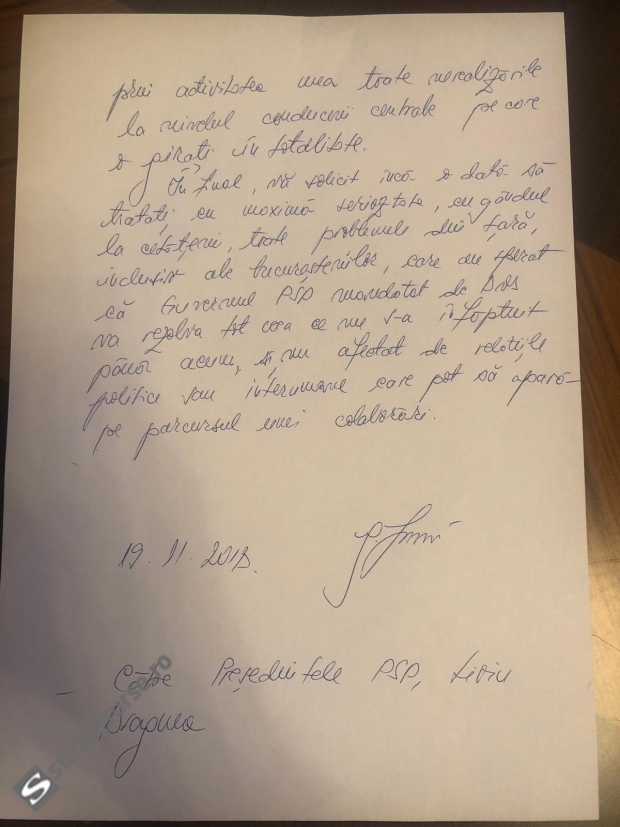 prin activitatea mea toate nerealizările
la nivelul conducerii centrale pe care
o pirați în totalitate.
În final, vă solicit încă o dată să
tratați cu maximă seriozitate, cu gândul
la cetățeni, toate problemele din țară,
inclusiv ale bucureștenilor, care au sperat
că Guvernul PSD mandatat de Dvs
va rezolva tot ceea ce nu s-a înfăptuit
până acum, și nu afectat de relațiile
politice sau interumane care pot să apară
pe parcursul unei colaborări.
19.11.2018.
Către Președintele PSD, Liviu
Dragnea
S stiripesurse.ro